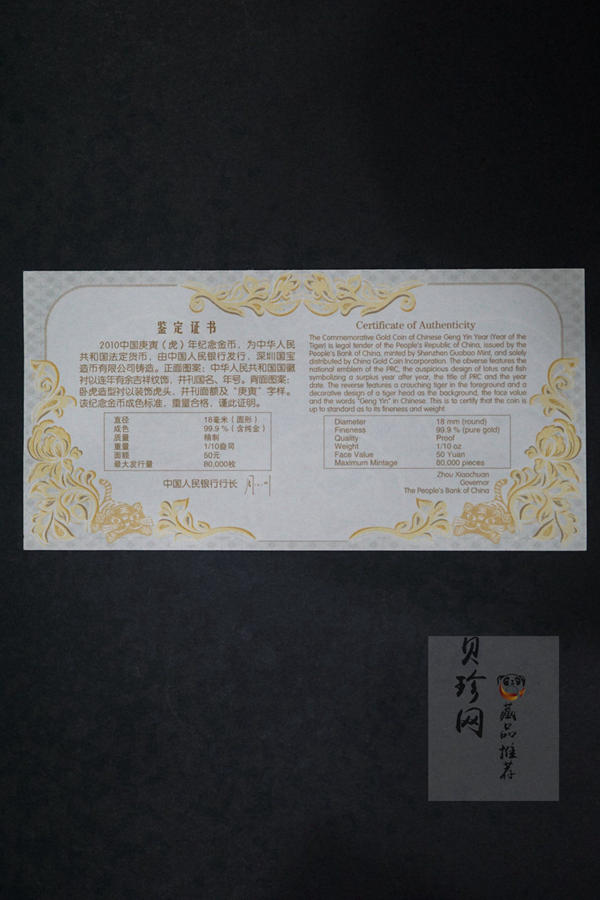 鉴定证书
2010中国庚寅（虎）年纪念金币，为中华人民
共和国法定货币，由中国人民银行发行，深圳国宝
造币有限公司铸造。正面图案：中华人民共和国国徽
衬以连年有余吉祥纹饰，并刊国名、年号。背面图案：
卧虎造型衬以装饰虎头，并刊面额及“庚寅”字样。
该纪念金币成色标准，重量合格，谨此证明。
直径 18毫米（圆形）
成色 99.9％（含纯金）
质量 精制
重量 1/10盎司
面额 50元
最大发行量 80,000枚
中国人民银行行长 周小川
Certificate of Authenticity
The Commemorative Gold Coin of Chinese Geng Yin Year (Year of the
Tiger) is legal tender of the People's Republic of China, issued by the
People's Bank of China, minted by Shenzhen Guobao Mint, and solely
distributed by China Gold Coin Incorporation. The obverse features the
national emblem of the PRC, the auspicious design of lotus and fish
symbolizing a surplus year after year, the title of PRC and the year
date. The reverse features a crouching tiger in the foreground and a
decorative design of a tiger head as the background, the face value
and the words "Geng Yin" in Chinese. This is to certify that the coin is
up to standard as to its fineness and weight.
Diameter 18 mm (round)
Fineness 99.9 % (pure gold)
Quality Proof
Weight 1/10 oz
Face Value 50 Yuan
Maximum Mintage 80,000 pieces
Zhou Xiaochuan
Governor
The People's Bank of China
贝珍网
藏品推荐